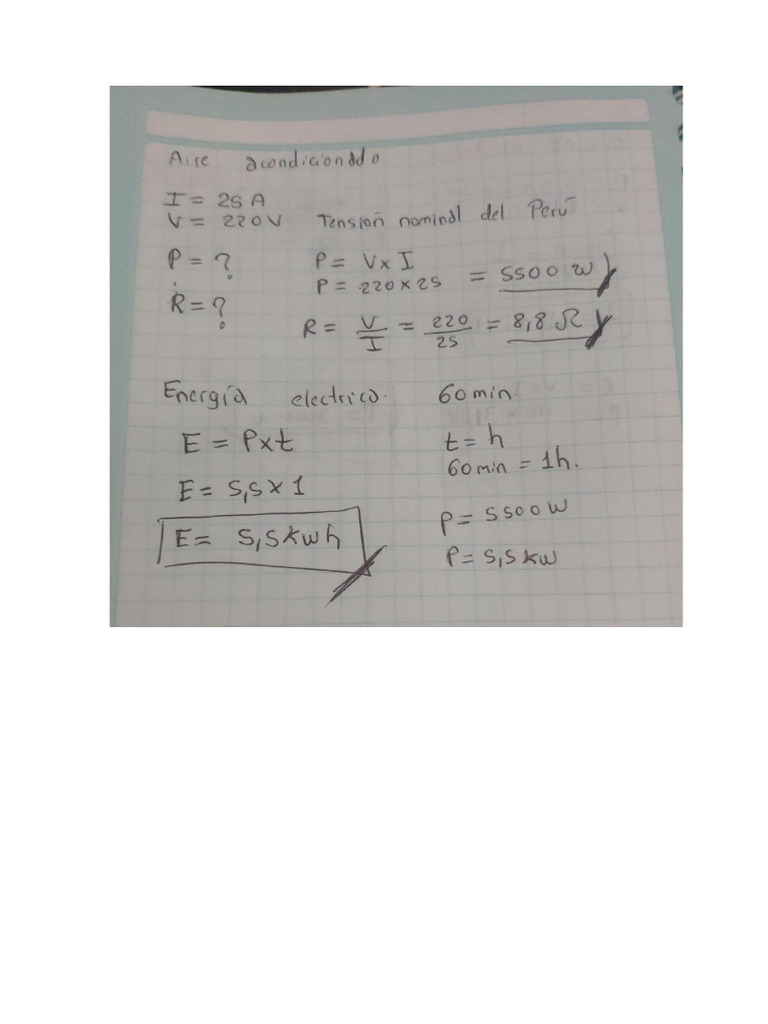 Aire acondicionado
I = 25 A
V = 220 V Tensión nominal del Perú
P = ? P = V x I
P = 220 x 25 = 5500 W
R = ? R = V/I = 220/25 = 8,8 Ω
Energía electrico. 60 min
E = P x t t = h
60 min = 1h.
E = 5,5 x 1
P = 5500 W
E = 5,5 kwh
P = 5,5 kw